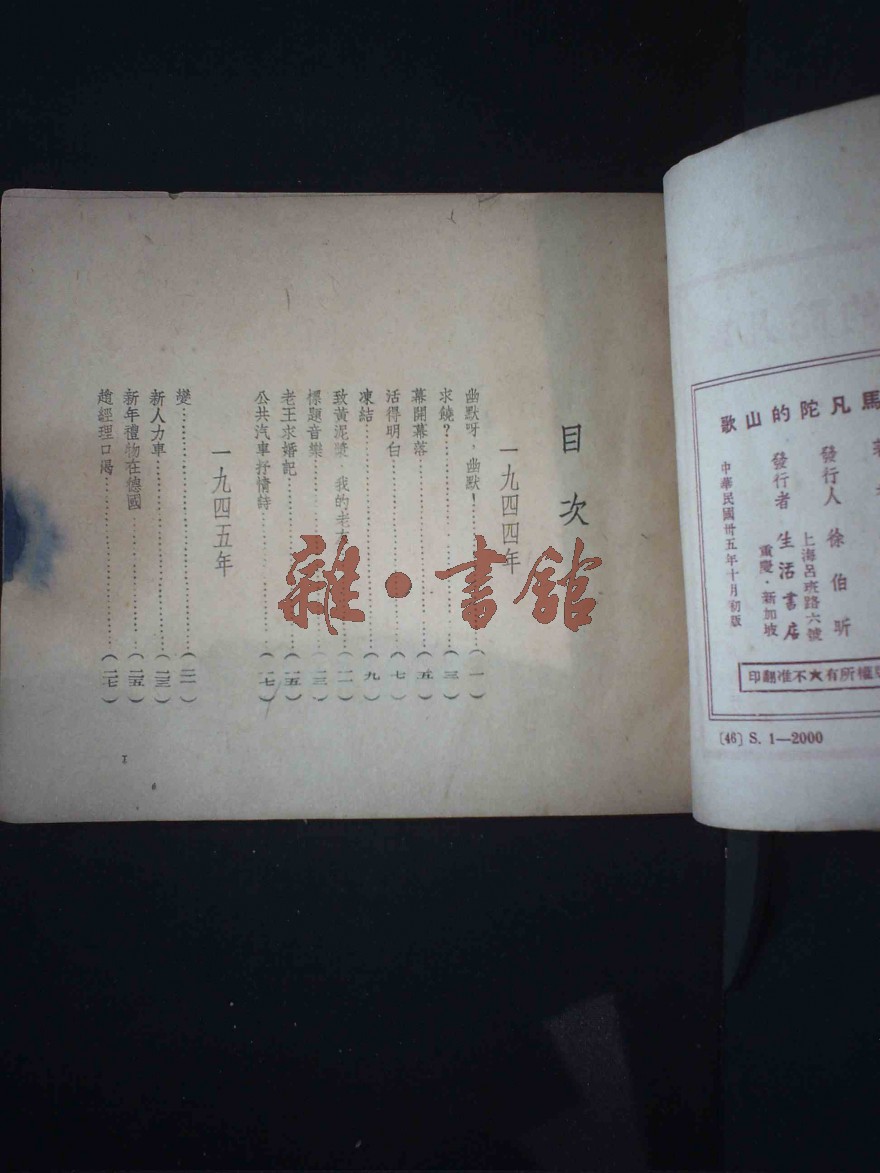 歌山的陀凡馬
發行人 徐伯昕
上海呂班路六號
發行者 生活書店
重慶·新加坡
中華民國卅五年十月初版
印翻准不★有所權
[46] S. 1—2000
目次
一九四四年
幽默呀，幽默！…………(一)
求饒？…………(三)
幕開幕落…………(五)
活得明白…………(七)
凍結…………(九)
致黃泥漿，我的老…………(一一)
標題音樂…………(一三)
老王求婚記…………(一五)
公共汽車抒情詩…………(一七)
一九四五年
變…………(二一)
新人力車…………(二三)
新年禮物在德國…………(二五)
趙經理口渴…………(二七)
I
雜·書館